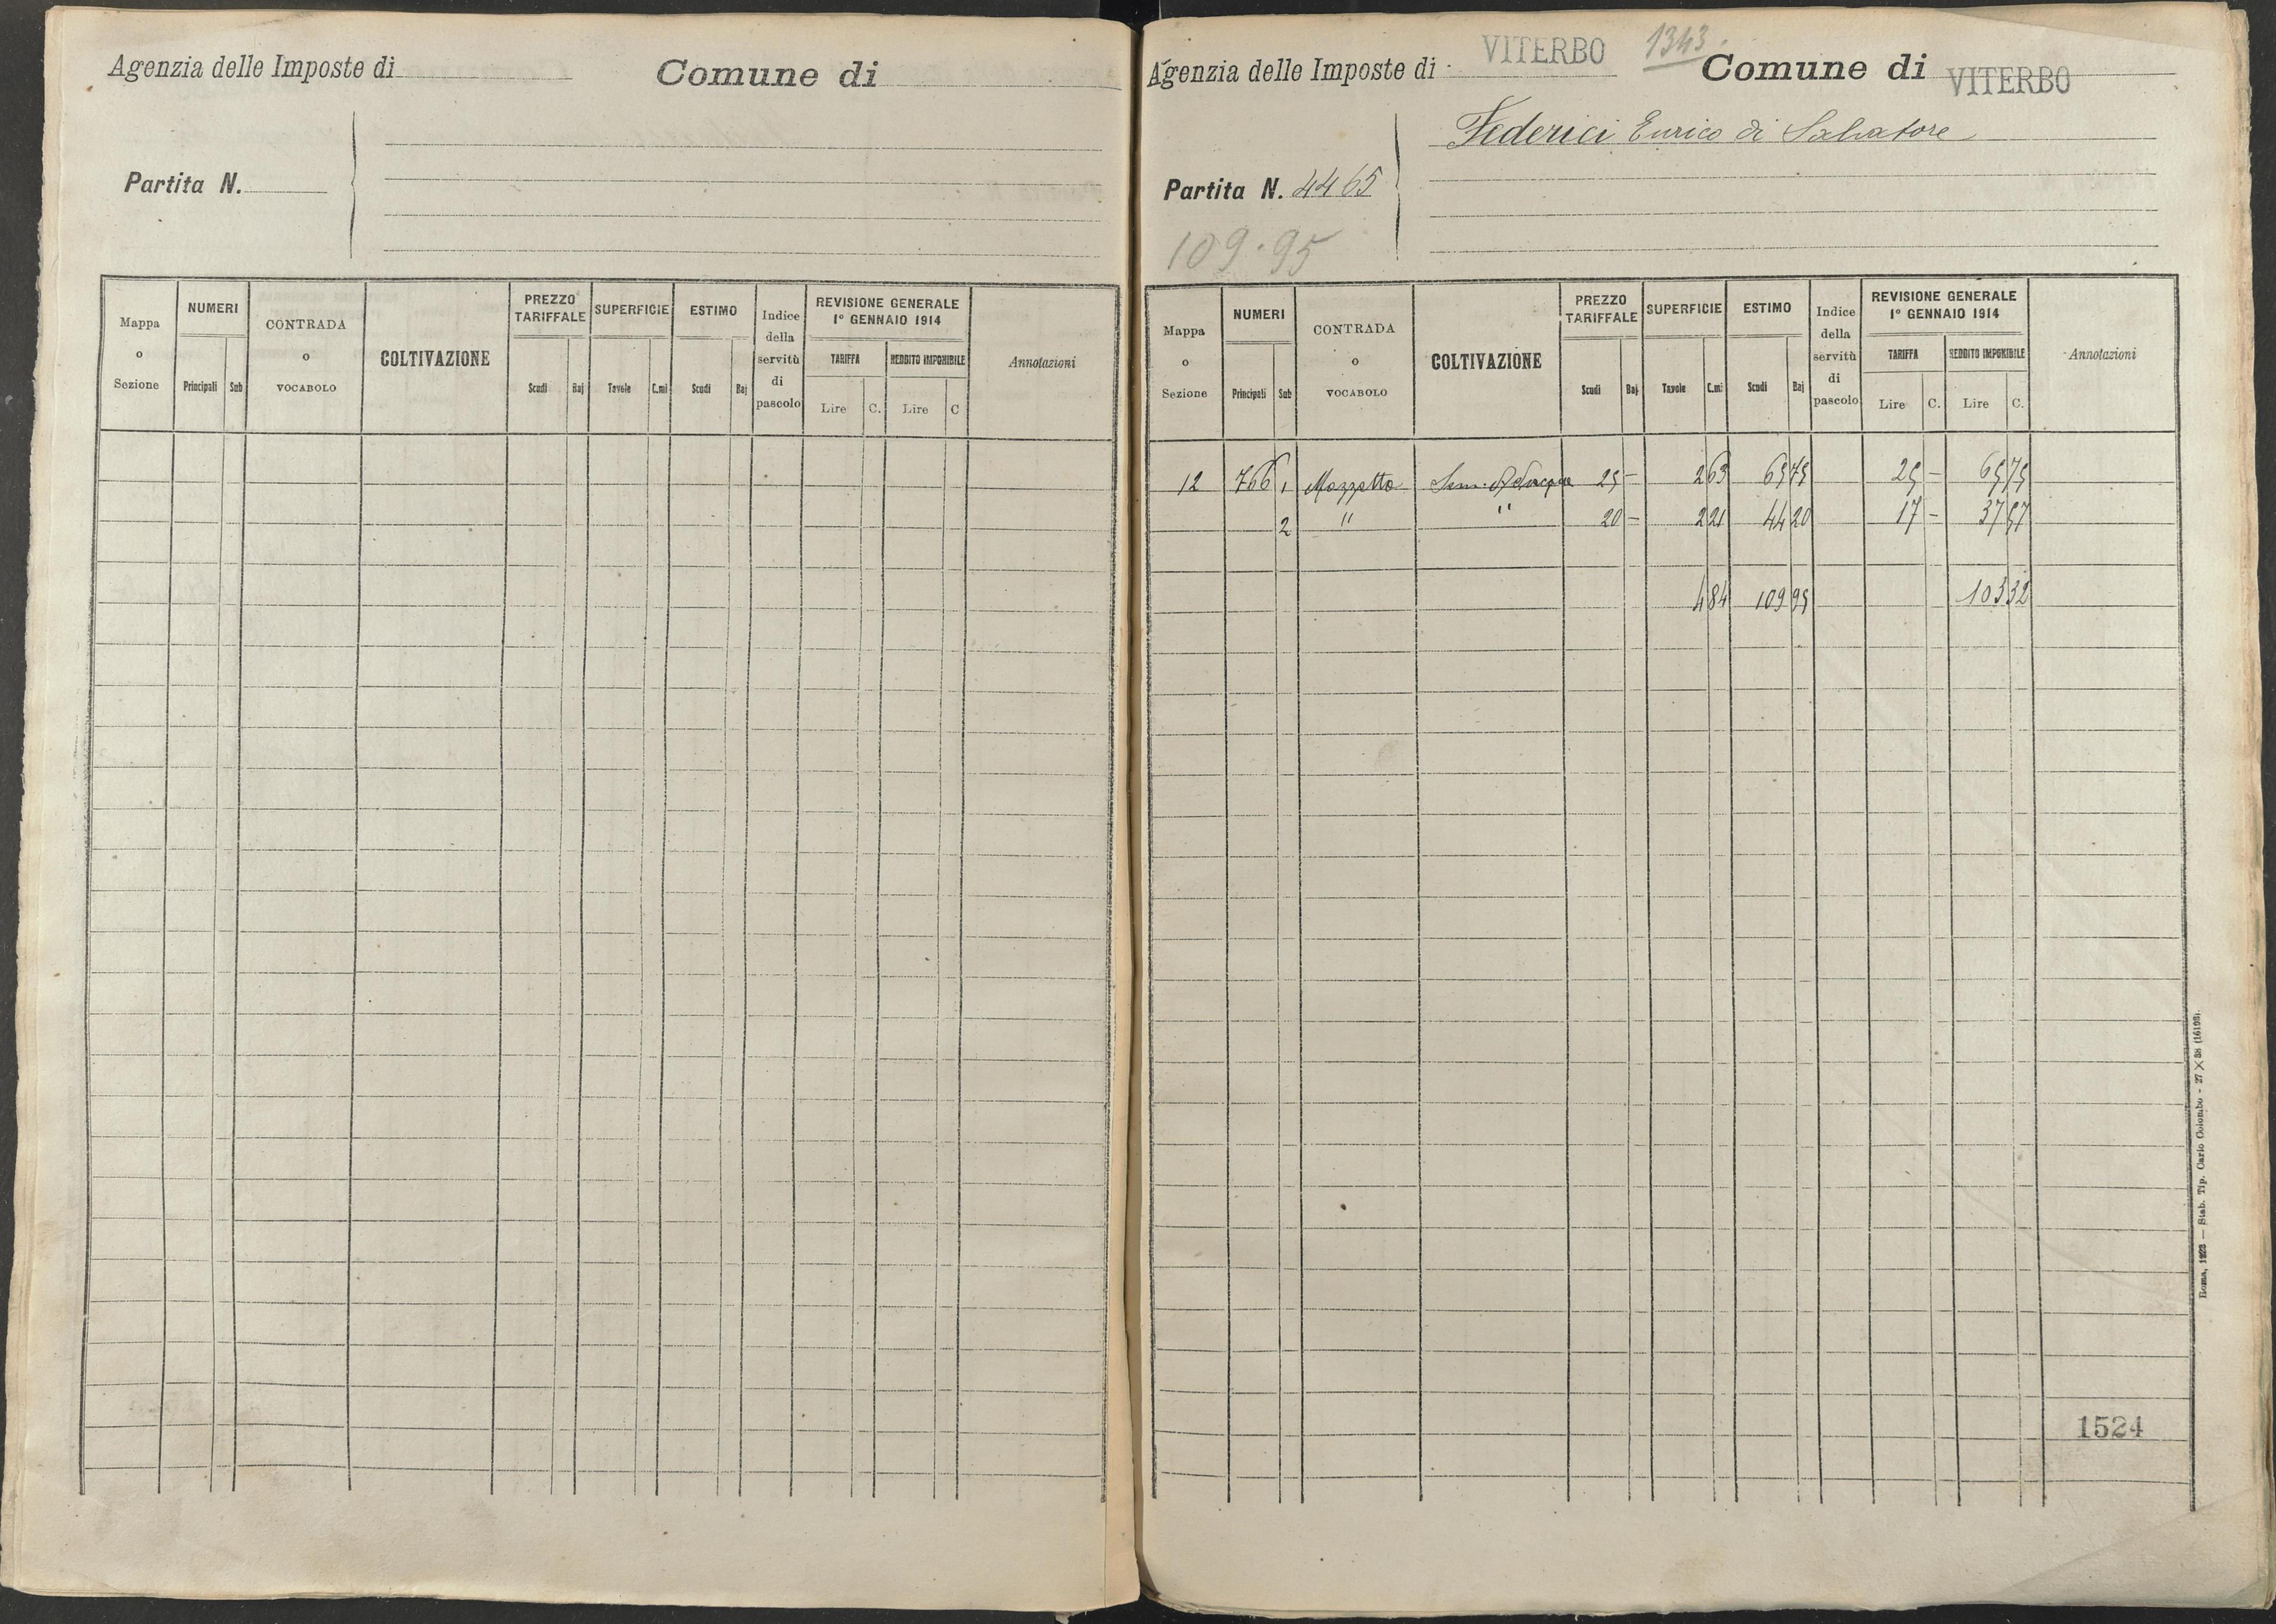 Agenzia delle Imposte di
Comune di
Partita N.
Mappa o Sezione
NUMERI
Principali Sub
CONTRADA o VOCABOLO
COLTIVAZIONE
PREZZO TARIFFALE
Scudi Baj
SUPERFICIE
Tavole C.mi
ESTIMO
Scudi Baj
Indice della servitù di pascolo
REVISIONE GENERALE
1° GENNAIO 1914
TARIFFA REDDITO IMPONIBILE
Lire C. Lire C
Annotazioni
1343.
Agenzia delle Imposte di VITERBO
Comune di VITERBO
Federici Enrico di Salvatore
Partita N. 4465
109.95
Mappa o Sezione
NUMERI
Principali Sub
CONTRADA o VOCABOLO
COLTIVAZIONE
PREZZO TARIFFALE
Scudi Baj
SUPERFICIE
Tavole C.mi
ESTIMO
Scudi Baj
Indice della servitù di pascolo
REVISIONE GENERALE
1° GENNAIO 1914
TARIFFA REDDITO IMPONIBILE
Lire C. Lire C.
Annotazioni
12 766 1 Mazzetta Sem. 25 – 2 63 65 75 25 – 65 75
2 " " 20 – 2 21 44 20 17 – 37 57
4 84 109 95 103 32
1524
Roma, 1923 — Stab. Tip. Carlo Colombo - 27 X 38 (16198).